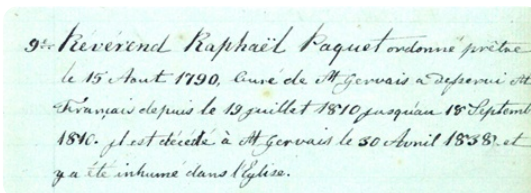 9e Révérend Raphaël Paquet ordonné prêtre
le 15 Aout 1790, Curé de St Gervais a desservi St
Français depuis le 19 juillet 1810 jusqu'au 18 Septemb
1810. il est décédé à St Gervais le 30 Avril 1838 et
y a été inhumé dans l'Eglise.